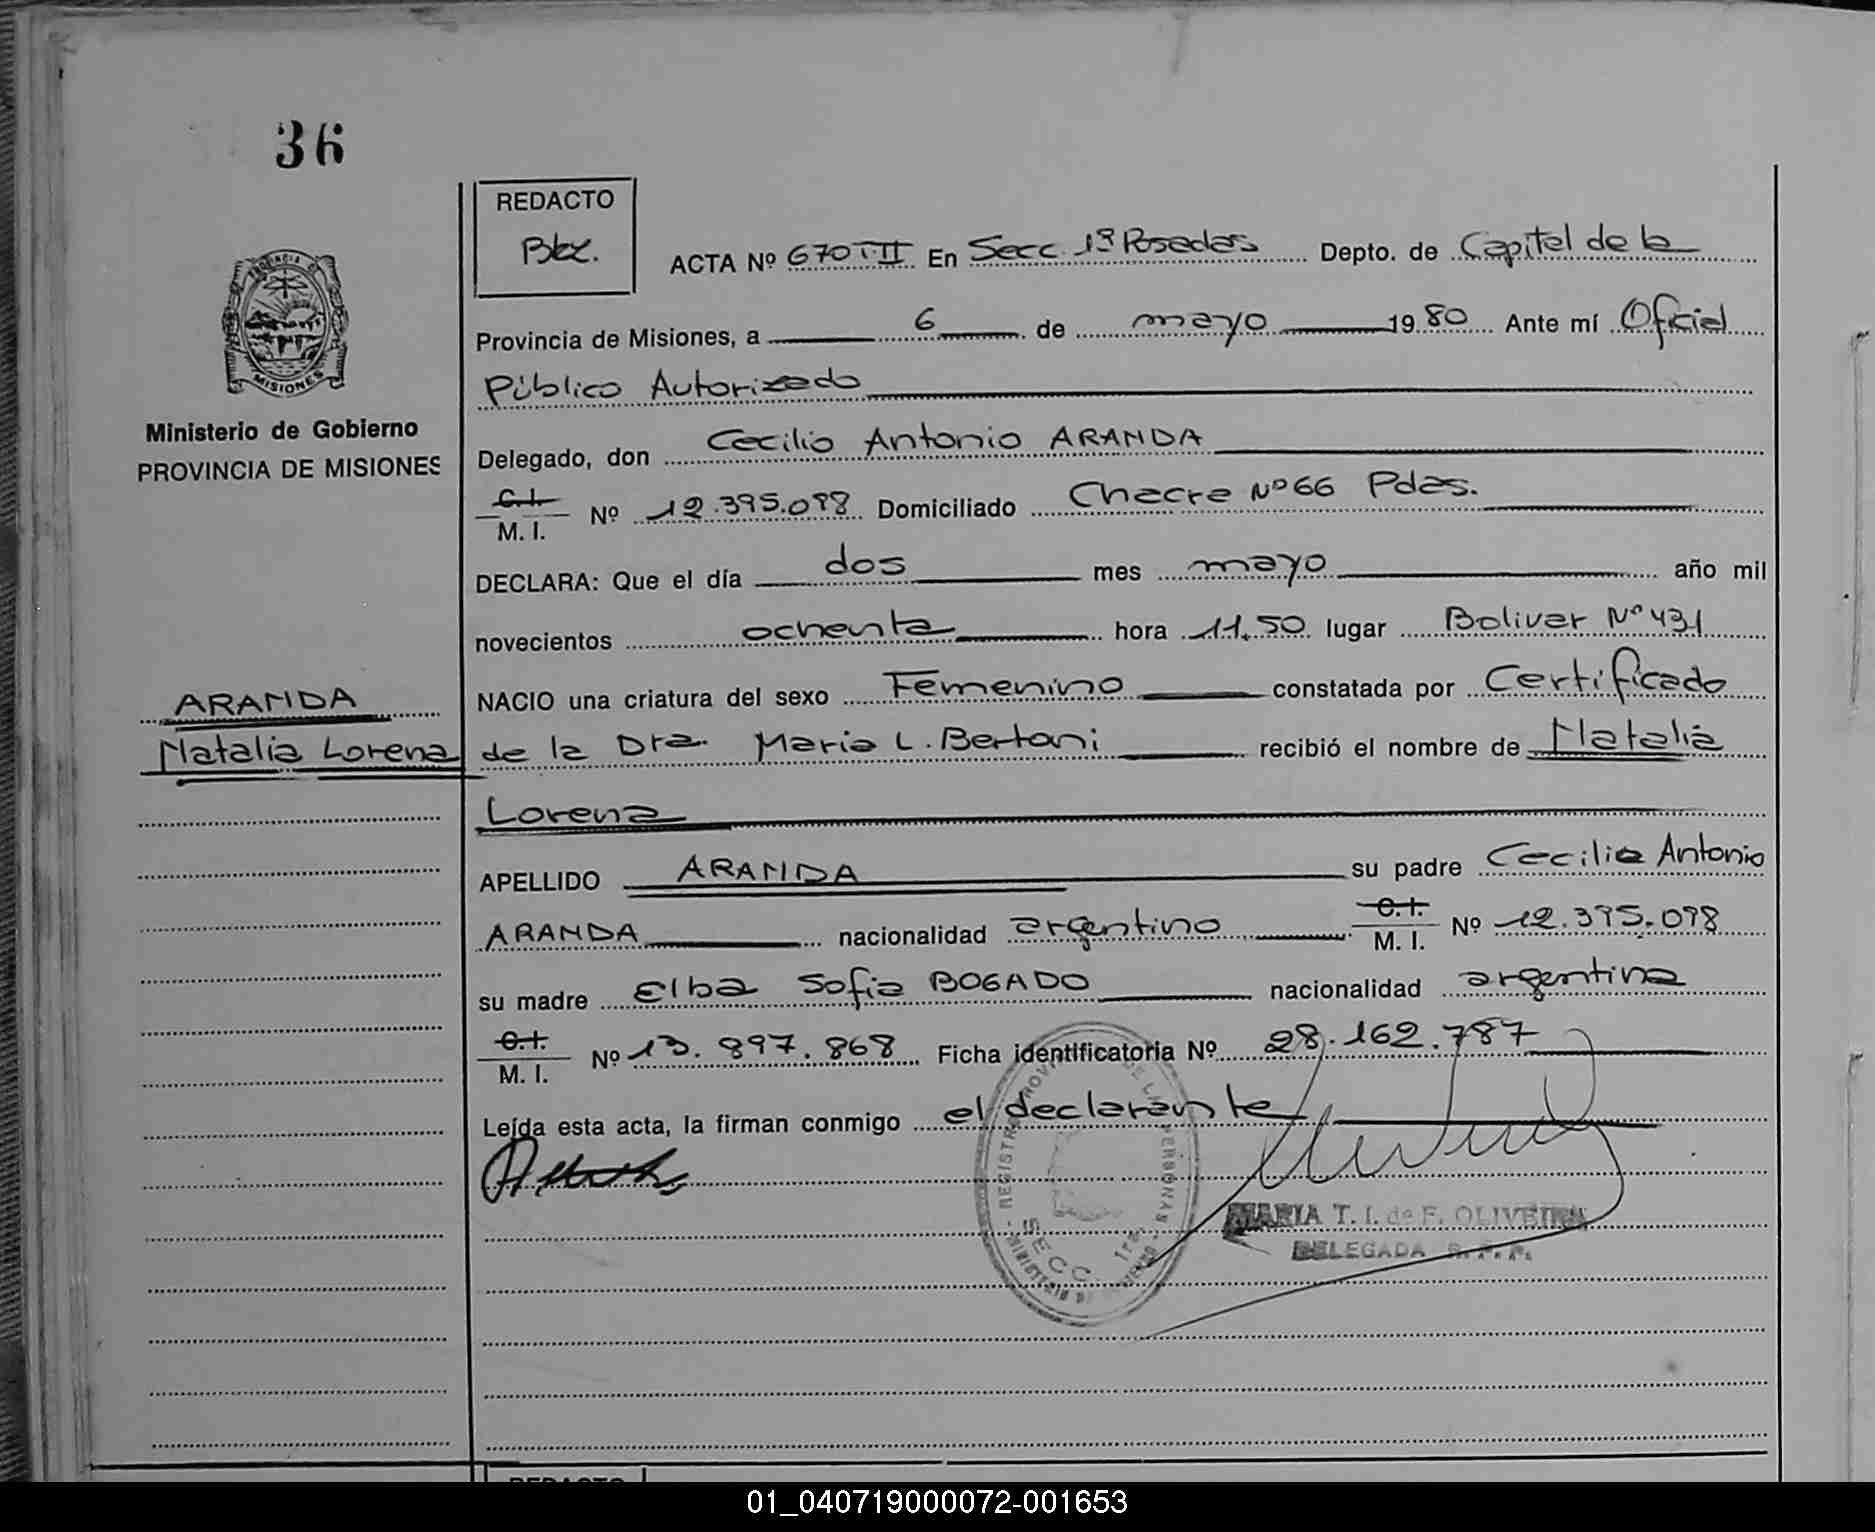 36
REDACTO
Bez.
ACTA Nº 670 T·II En Secc. 1ª Posadas Depto. de Capital de la
Provincia de Misiones, a 6 de mayo 1980 Ante mí Oficial
Público Autorizado
PROVINCIA DE
MISIONES
Ministerio de Gobierno
PROVINCIA DE MISIONES
Delegado, don Cecilio Antonio ARANDA
C.I.
M. I. Nº 12.395.098 Domiciliado Chacra Nº 66 Pdas.
DECLARA: Que el día dos mes mayo año mil
novecientos ochenta hora 11,50 lugar Bolivar Nº 431
NACIO una criatura del sexo Femenino constatada por Certificado
ARANDA
Natalia Lorena
de la Dra. Maria L. Bertoni recibió el nombre de Natalia
Lorena
APELLIDO ARANDA su padre Cecilio Antonio
ARANDA nacionalidad argentino C.I.
M. I. Nº 12.395.098
su madre Elba Sofia BOGADO nacionalidad argentina
C.I.
M. I. Nº 13.897.868 Ficha identificatoria Nº 28.162.787
Leída esta acta, la firman conmigo el declarante
SECC. 1ra.
MARIA T. I. de F. OLIVEIRA
DELEGADA R. P. P.
REDACTO
01_040719000072-001653